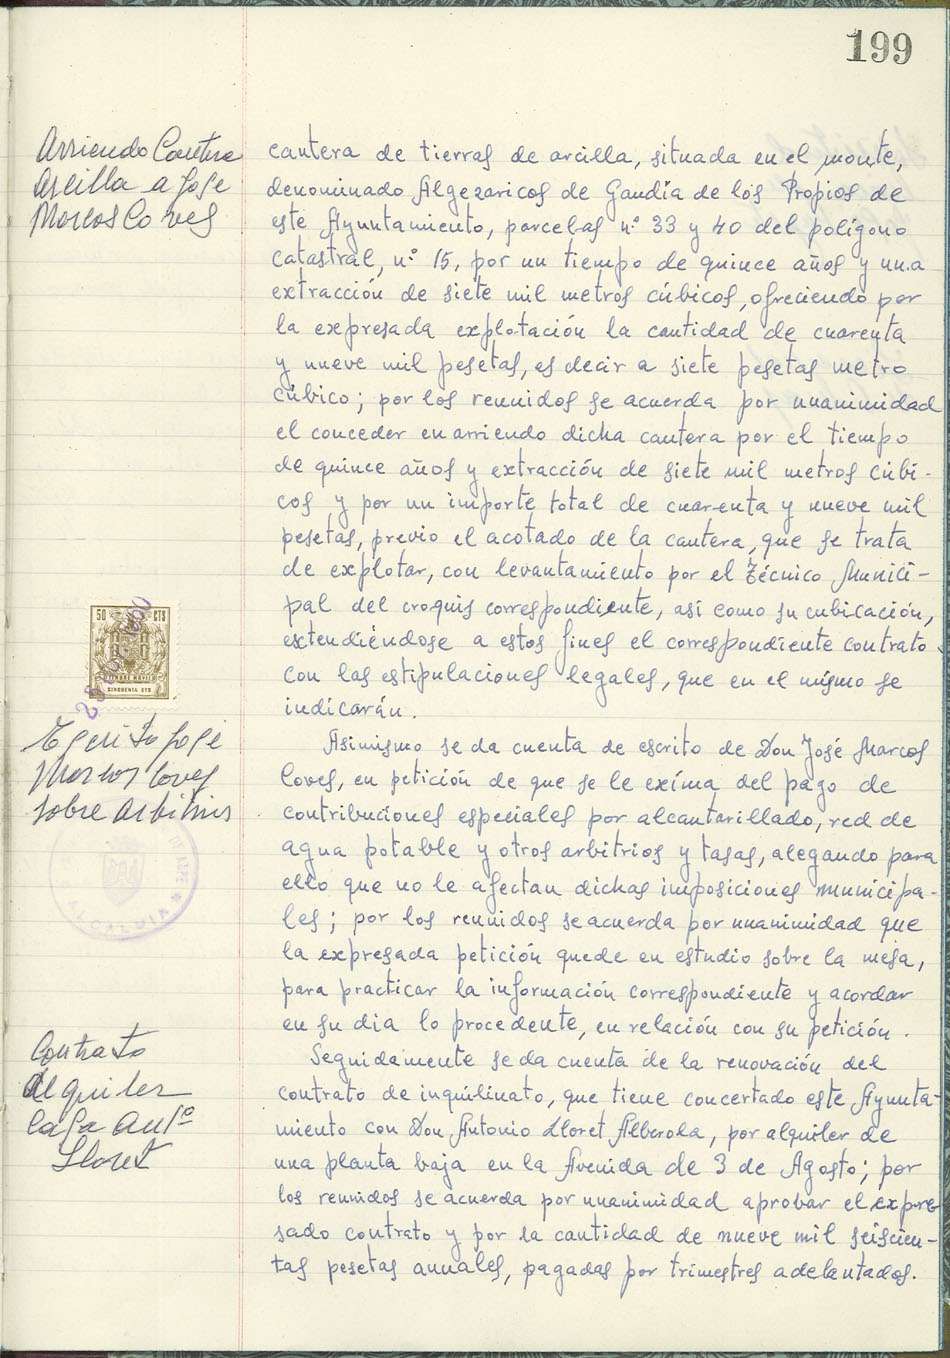 199
Arriendo Cantera
Arcilla a José
Marcos Coves
cantera de tierras de arcilla, situada en el monte,
denominado Algezaricos de Gandía de los Propios de
este Ayuntamiento, parcelas nº 33 y 40 del polígono
catastral, nº 15, por un tiempo de quince años y una
extracción de siete mil metros cúbicos, ofreciendo por
la expresada explotación la cantidad de cuarenta
y nueve mil pesetas, es decir a siete pesetas metro
cúbico; por los reunidos se acuerda por unanimidad
el conceder en arriendo dicha cantera por el tiempo
de quince años y extracción de siete mil metros cúbi-
cos y por un importe total de cuarenta y nueve mil
pesetas, previo el acotado de la cantera, que se trata
de explotar, con levantamiento por el Técnico Munici-
pal del croquis correspondiente, así como su cubicación,
extendiéndose a estos fines el correspondiente contrato
con las estipulaciones legales, que en el mismo se
indicarán.
50 CTS
TIMBRE MOVIL
CINCUENTA CTS
Escrito José
Marcos Coves
sobre arbitrios
ALCALDIA
Asimismo se da cuenta de escrito de Don José Marcos
Coves, en petición de que se le exíma del pago de
contribuciones especiales por alcantarillado, red de
agua potable y otros arbitrios y tasas, alegando para
ello que no le afectan dichas imposiciones municipa-
les; por los reunidos se acuerda por unanimidad que
la expresada petición quede en estudio sobre la mesa,
para practicar la información correspondiente y acordar
en su dia lo procedente, en relación con su petición.
Contrato
alquiler
casa Antº
Lloret
Seguidamente se da cuenta de la renovación del
contrato de inquilinato, que tiene concertado este Ayunta-
miento con Don Antonio Lloret Alberola, por alquiler de
una planta baja en la Avenida de 3 de Agosto; por
los reunidos se acuerda por unanimidad aprobar el expre-
sado contrato y por la cantidad de nueve mil seiscien-
tas pesetas anuales, pagadas por trimestres adelantados.